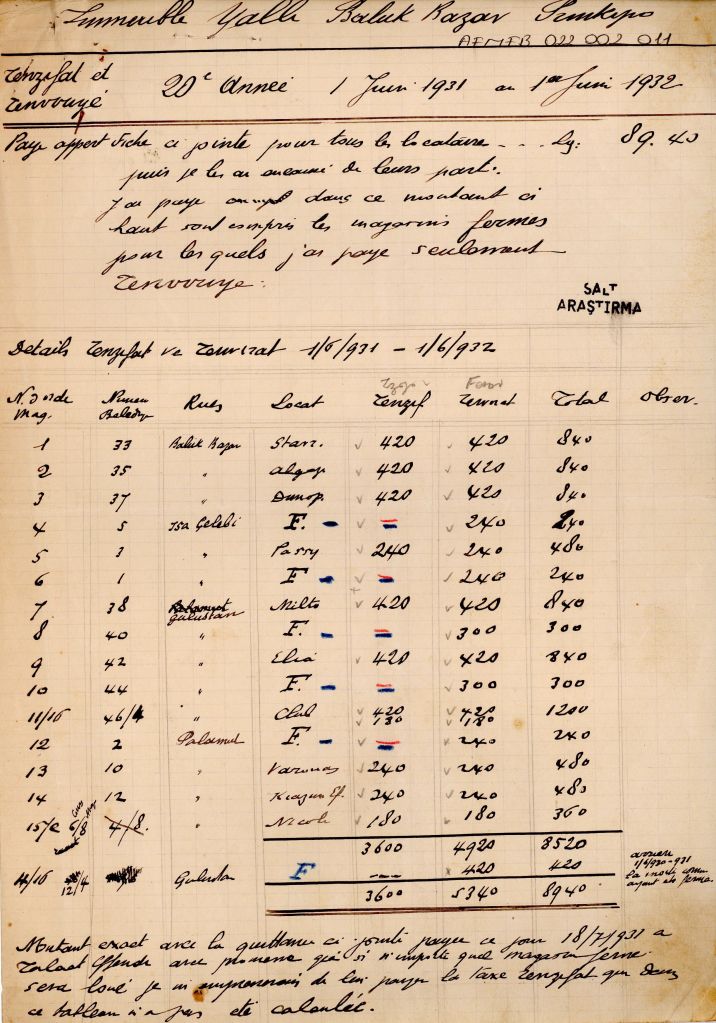 Immeuble Yalli Baluk Bazar
AFMFB 022 002 011
Tenzifat et
20e Année 1 Juin 1931 au 1er Juin 1932
Tenvouyé
Paye appert fiche ci jointe pour tous les locataire - - . Lq: 89.40
puis je les ai de leurs part.
J'ai paye dans ce montant ci
haut sont compris les magasins fermes
pour les quels j'ai paye seulement
Tenvouye.
SALT
ARAŞTIRMA
Details Tenzifat ve Tenvirat 1/6/931 - 1/6/932
N. d'orde Rues Locat Tenzif Total Obser.
Mag.
1 33 Baluk Bazar 420 420 840
2 35 " 420 420 840
3 37 " 420 420 840
4 5 Isa Çelebi F. - = 240 240
5 3 " 240 240 480
6 1 " F - = 240 240
7 38 Gulustan Milto 420 420 840
8 40 " F. - = 300 300
9 42 " Elia 420 420 840
10 44 " F. - = 300 300
11/16 46/4 " Club 420 420 1200
180 180
12 2 Palamut F. - = 240 240
13 10 " 240 240 480
14 12 " Ef. 240 240 480
6/8 4/8. " Nicoli 180 180 360
3600 4920 8520
12/4 Gulustan F --- 420 420
3600 5340 8940
1/6/930-931
Mutant exact avec la quittance ci jointe payée ce jour 18/7/1931 a
Talaat Effendi avec promesse que si n'importe quel magasin ferme
sera loué je de lui payer la Taxe Tenzifat que dans
ce tableau n'a pas été calculée.